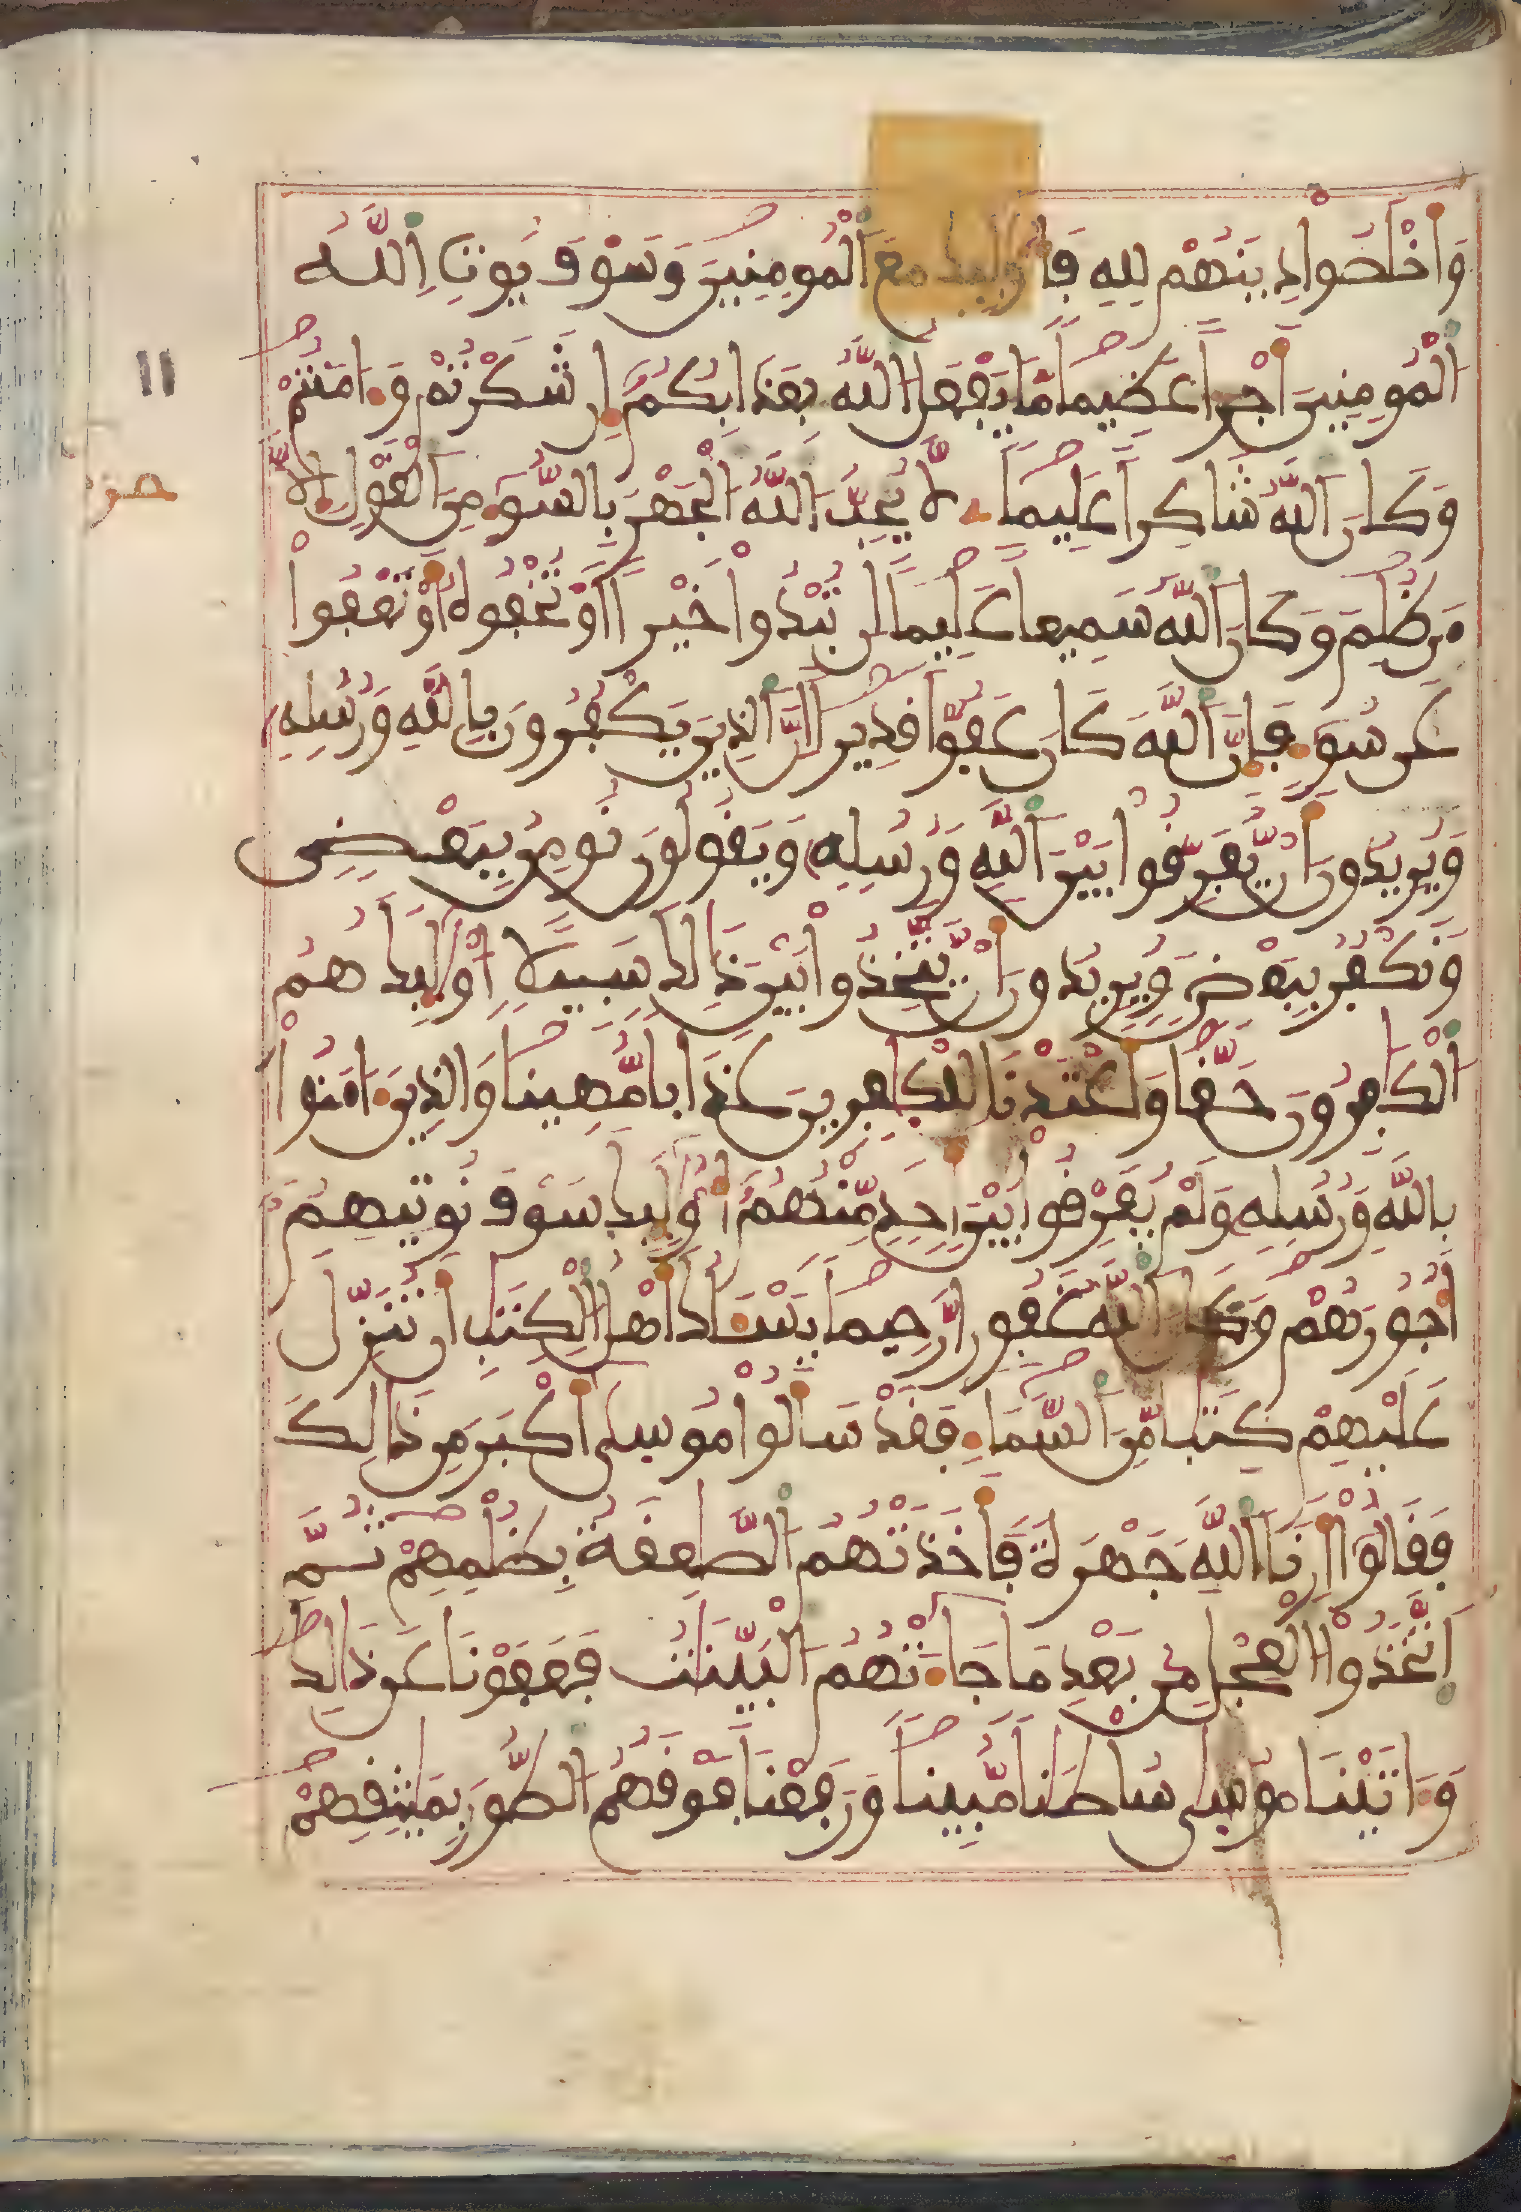 وَأَخْلَصُواْ دِينَهُمْ لِلهِ فَأُوْلَٰئِكَ مَعَ ٱلْمُومِنِينَ وَسَوْفَ يُوتِ ٱللَّهُ
ٱلْمُومِنِينَ أَجْراً عَظِيماً مَّا يَفْعَلُ ٱللَّهُ بِعَذَابِكُمُ إِن شَكَرْتُمْ وَءَامَنتُمْ
وَكَانَ ٱللَّهُ شَاكِراً عَلِيماً لَّا يُحِبُّ ٱللَّهُ ٱلْجَهْرَ بِالسُّوٓءِ مِنَ ٱلْقَوْلِ إِلَّا
مَن ظُلِمَ وَكَانَ ٱللَّهُ سَمِيعاً عَلِيماً إِن تُبْدُواْ خَيْراً أَوْ تُخْفُوهُ أَوْ تَعْفُواْ
عَن سُوٓءٍ فَإِنَّ ٱللَّهَ كَانَ عَفُوّاً قَدِيراً إِنَّ ٱلذِينَ يَكْفُرُونَ بِاللَّهِ وَرُسُلِهِ
وَيُرِيدُونَ أَنْ يُّفَرِّقُواْ بَيْنَ ٱللَّهِ وَرُسُلِهِ وَيَقُولُونَ نُومِنُ بِبَعْضٍ
وَنَكْفُرُ بِبَعْضٍ وَيُرِيدُونَ أَنْ يَّتَّخِذُواْ بَيْنَ ذَالِكَ سَبِيلاً أُوْلَٰئِكَ هُمُ
ٱلْكَافِرُونَ حَقّاً وَأَعْتَدْنَا لِلْكَافِرِينَ عَذَاباً مُّهِيناً وَالذِينَ ءَامَنُواْ
بِاللَّهِ وَرُسُلِهِ وَلَمْ يُفَرِّقُواْ بَيْنَ أَحَدٍ مِّنْهُمُ أُوْلَٰئِكَ سَوْفَ نُوتِيهِمُ
أُجُورَهُمْ وَكَانَ ٱللَّهُ غَفُوراً رَّحِيماً يَسْـَٔلُكَ أَهْلُ ٱلْكِتَٰبِ أَن تُنَزِّلَ
عَلَيْهِمْ كِتَٰباً مِّنَ ٱلسَّمَاءِ فَقَدْ سَأَلُواْ مُوسَىٰ أَكْبَرَ مِن ذَالِكَ
فَقَالُواْ أَرِنَا ٱللَّهَ جَهْرَةً فَأَخَذَتْهُمُ ٱلصَّٰعِقَةُ بِظُلْمِهِمْ ثُمَّ
ٱتَّخَذُواْ ٱلْعِجْلَ مِن بَعْدِ مَا جَاءَتْهُمُ ٱلْبَيِّنَاتُ فَعَفَوْنَا عَن ذَالِكَ
وَءَاتَيْنَا مُوسَىٰ سُلْطَٰناً مُّبِيناً وَرَفَعْنَا فَوْقَهُمُ ٱلطُّورَ بِمِيثَٰقِهِمْ